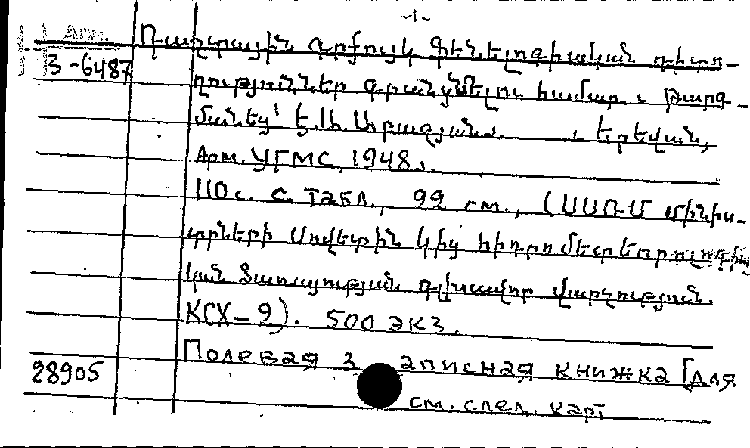 -1-
Арм.
3-6487 Դաշտային գրքույկ ֆենելոգիական դիտո-
ղություններ գրանցմելու համար ։ Թարգ-
մանեց՝ Է.Ա. Աբազյան. ։ Երեվան,
Арм. УГМС, 1948.
110 с. с табл., 22 см., (ՍՍՌՄ մինիս-
տրների Սովետին կից հիդրոմետեորոլոգիա-
կան ծառայության գլխավոր վարչություն.
КСХ-9). 500 экз.
Полевая записная книжка [для
28905
см. след. карт